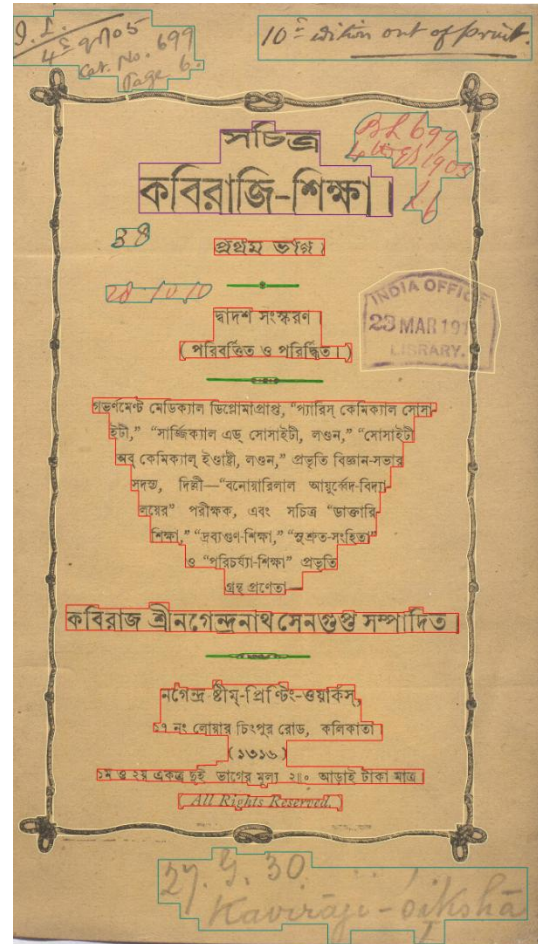 4º qr 05
Cat. No. 699
Page 6.
10º edition out of print.
সচিত্র
কবিরাজি-শিক্ষা।
BL 699
1903
16
38
প্রথম ভাগ।
28 10 10
INDIA OFFICE
23 MAR 191
LIBRARY.
দ্বাদশ সংস্করণ।
( পরিবর্ত্তিত ও পরিবর্দ্ধিত। )
গভর্ণমেন্ট মেডিক্যাল ডিপ্লোমাপ্রাপ্ত, “প্যারিস্ কেমিক্যাল সোসা-
ইটী,” “সার্জ্জিক্যাল এড্ সোসাইটী, লণ্ডন,” “সোসাইটী
অব্ কেমিক্যাল্ ইণ্ডাষ্ট্রী, লণ্ডন,” প্রভৃতি বিজ্ঞান-সভার
সদস্য, দিল্লী—“বনোয়ারিলাল আয়ুর্ব্বেদ-বিদ্যা-
লয়ের” পরীক্ষক, এবং সচিত্র “ডাক্তারি-
শিক্ষা,” “দ্রব্যগুণ-শিক্ষা,” “সুশ্রুত-সংহিতা”
ও “পরিচর্য্যা-শিক্ষা” প্রভৃতি
গ্রন্থ প্রণেতা—
কবিরাজ শ্রীনগেন্দ্রনাথসেনগুপ্ত সম্পাদিত।
নগেন্দ্র ষ্টীম্-প্রিণ্টিং-ওয়ার্কস্,
১৭ নং লোয়ার চিৎপুর রোড, কলিকাতা।
(১৩১৬)
১ম ও ২য় একত্র দুই ভাগের মূল্য ২॥০ আড়াই টাকা মাত্র।
[ All Rights Reserved. ]
27. 9. 30.
Kavirāji-śikshā